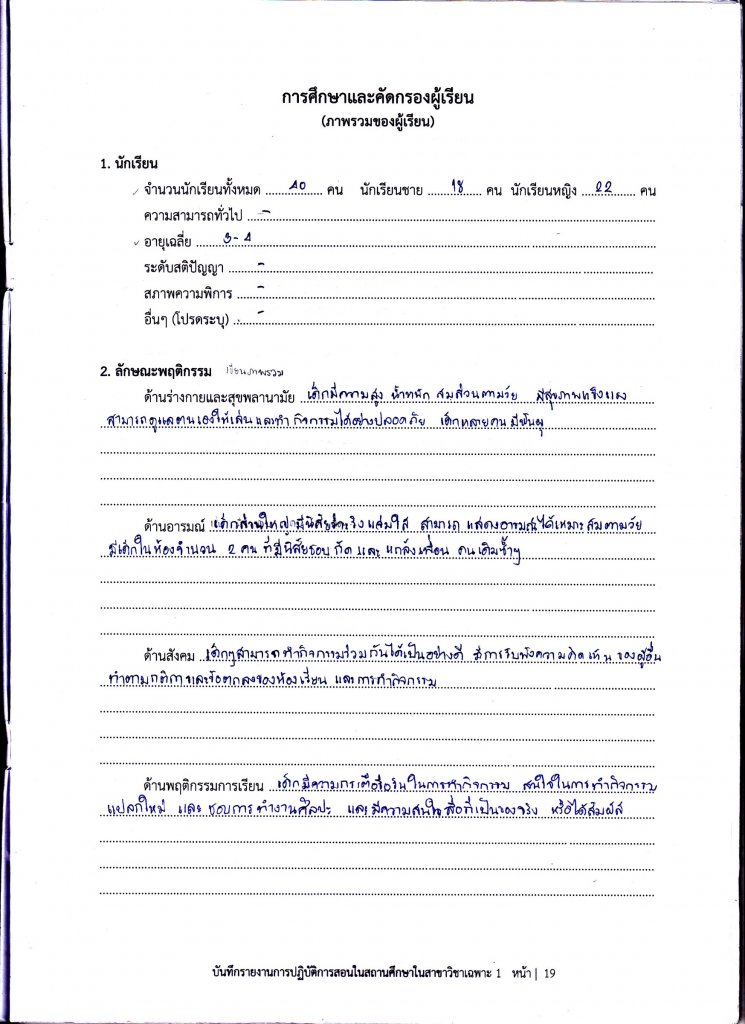 การศึกษาและคัดกรองผู้เรียน
(ภาพรวมของผู้เรียน)
1. นักเรียน
✓ จำนวนนักเรียนทั้งหมด 40 คน นักเรียนชาย 18 คน นักเรียนหญิง 22 คน
ความสามารถทั่วไป -
✓ อายุเฉลี่ย 3-4
ระดับสติปัญญา -
สภาพความพิการ -
อื่นๆ (โปรดระบุ) -
2. ลักษณะพฤติกรรม เขียนภาพรวม
ด้านร่างกายและสุขพลานามัย เด็กมีความสูง น้ำหนัก สมส่วนตามวัย มีสุขภาพแข็งแรง
สามารถดูแลตนเองให้เล่นและทำกิจกรรมได้อย่างปลอดภัย เด็กหลายคนมีฟันผุ
ด้านอารมณ์ เด็กส่วนใหญ่มีนิสัยร่าเริงแจ่มใส สามารถแสดงอารมณ์ได้เหมาะสมตามวัย
มีเด็กในห้องจำนวน 2 คน ที่มีนิสัยชอบกัด และแกล้งเพื่อน คนเดิมซ้ำๆ
ด้านสังคม เด็กๆสามารถทำกิจกรรมร่วมกันได้เป็นอย่างดี มีการรับฟังความคิดเห็นของผู้อื่น
ทำตามกติกาและข้อตกลงของห้องเรียน และการทำกิจกรรม
ด้านพฤติกรรมการเรียน เด็กมีความกระตือรือร้นในการทำกิจกรรม สนใจในการทำกิจกรรม
แปลกใหม่ และ ชอบการทำงานศิลปะ และมีความสนใจสื่อที่เป็นของจริง หรือได้สัมผัส
บันทึกรายงานการปฏิบัติการสอนในสถานศึกษาในสาขาวิชาเฉพาะ 1 หน้า | 19